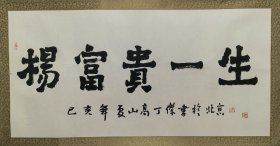 楊富貴一生
己亥年夏山高丁傑書於北京